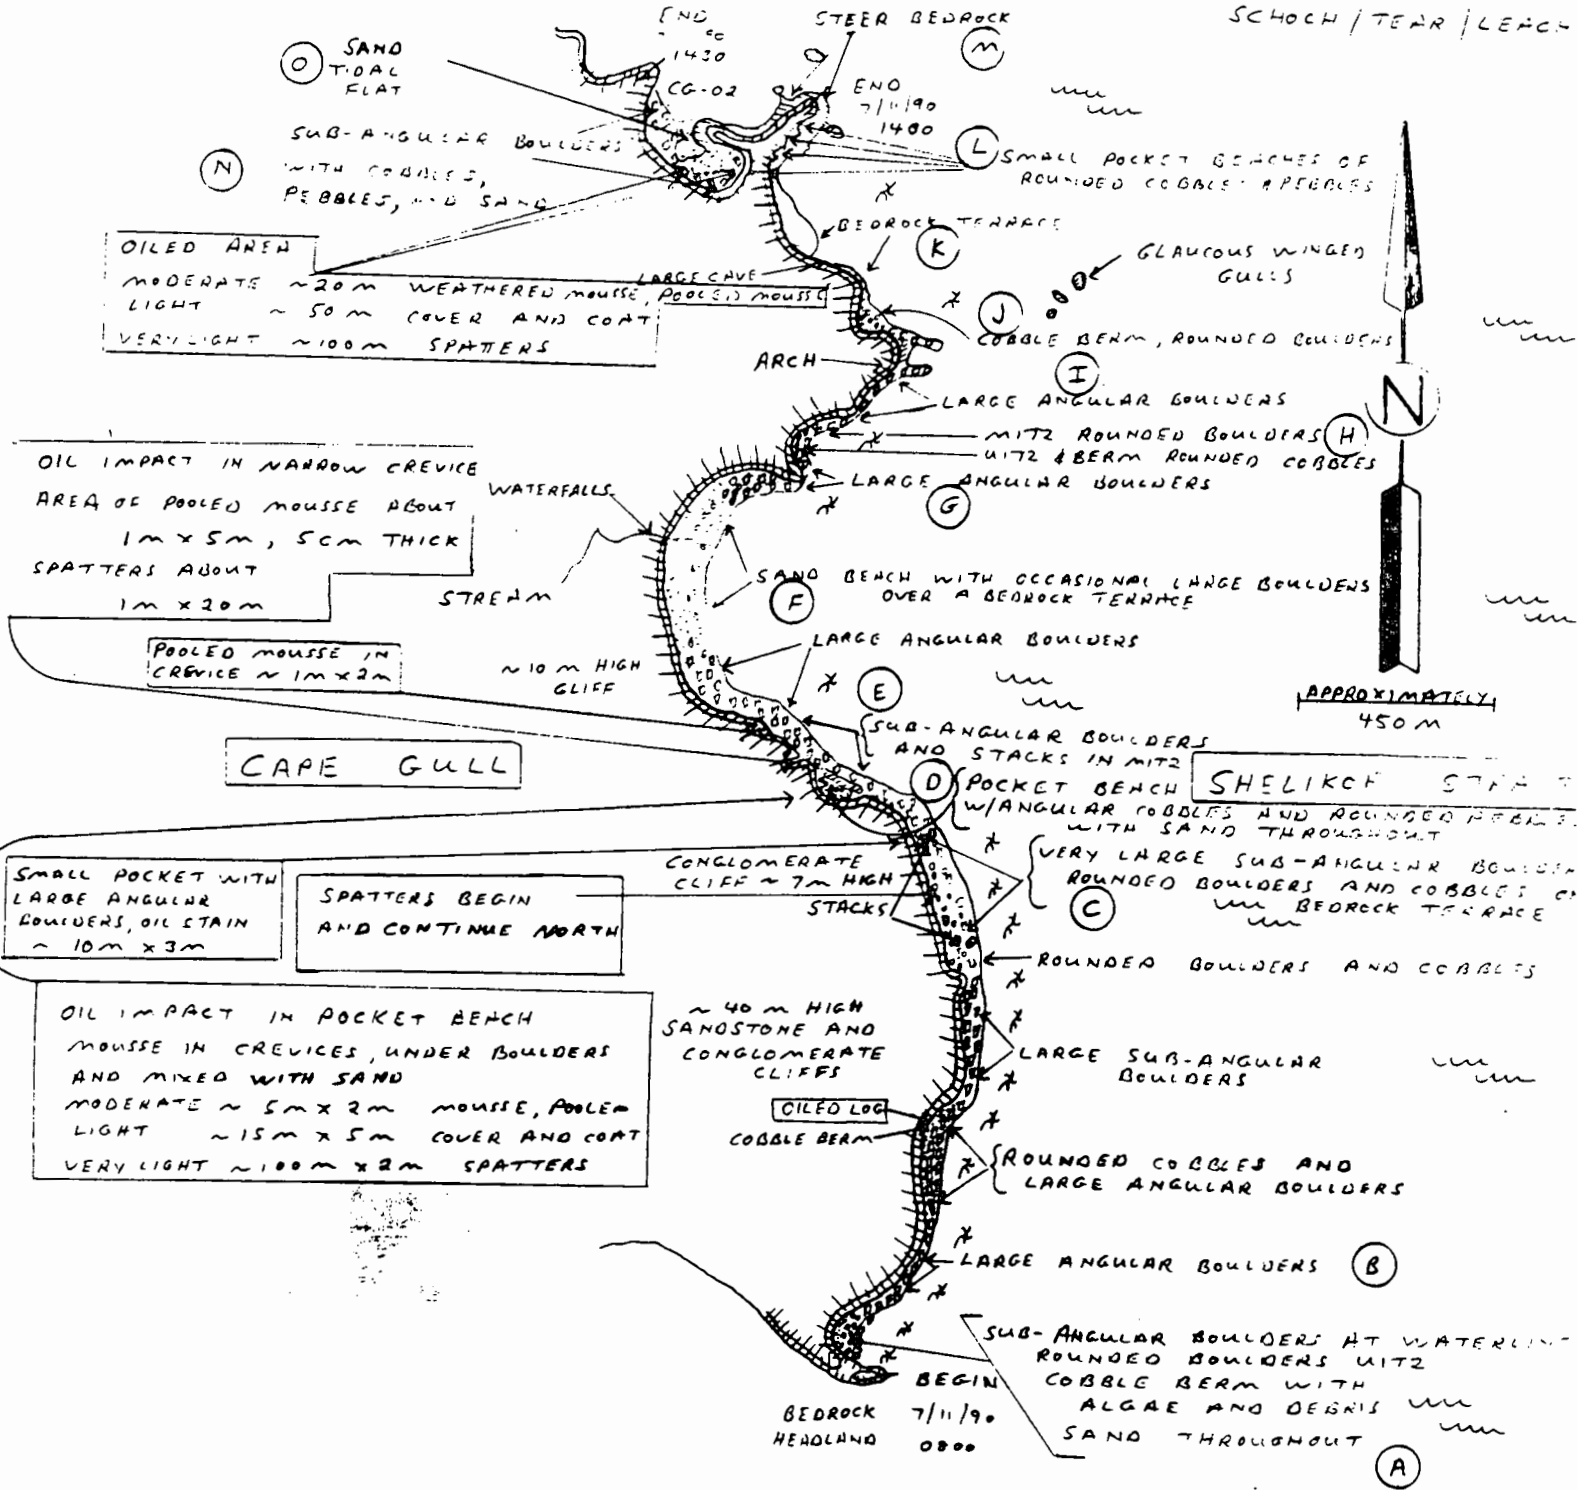 SCHOCH / TEAR / LEACH
END
1430
CG-02
STEER BEDROCK
M
O
SAND
TIDAL
FLAT
END
7/11/90
1400
N
SUB-ANGULAR BOULDERS
WITH COBBLES,
PEBBLES, AND SAND
L
SMALL POCKET BEACHES OF
ROUNDED COBBLES & PEBBLES
BEDROCK TERRACE
K
OILED AREA
MODERATE ~20m WEATHERED MOUSSE, POOLED MOUSSE
LIGHT ~50m COVER AND COAT
VERY LIGHT ~100m SPATTERS
LARGE CAVE
GLAUCOUS WINGED
GULLS
J
COBBLE BERM, ROUNDED BOULDERS
ARCH
I
LARGE ANGULAR BOULDERS
N
MITZ ROUNDED BOULDERS
H
UITZ & BERM ROUNDED COBBLES
LARGE ANGULAR BOULDERS
G
OIL IMPACT IN NARROW CREVICE
AREA OF POOLED MOUSSE ABOUT
1m x 5m, 5cm THICK
SPATTERS ABOUT
1m x 20m
WATERFALLS
STREAM
SAND BEACH WITH OCCASIONAL LARGE BOULDERS
OVER A BEDROCK TERRACE
F
LARGE ANGULAR BOULDERS
POOLED MOUSSE IN
CREVICE ~ 1m x 2m
~10 m HIGH
CLIFF
E
SUB-ANGULAR BOULDERS
AND STACKS IN MITZ
APPROXIMATELY
450 M
CAPE GULL
SHELIKOF
D
POCKET BEACH
W/ANGULAR COBBLES AND ROUNDED PEBBLES
WITH SAND THROUGHOUT
VERY LARGE SUB-ANGULAR
ROUNDED BOULDERS AND COBBLES
BEDROCK TERRACE
C
SMALL POCKET WITH
LARGE ANGULAR
BOULDERS, OIL STAIN
~ 10m x 3m
SPATTERS BEGIN
AND CONTINUE NORTH
CONGLOMERATE
CLIFF ~ 7m HIGH
STACKS
ROUNDED BOULDERS AND COBBLES
OIL IMPACT IN POCKET BEACH
MOUSSE IN CREVICES, UNDER BOULDERS
AND MIXED WITH SAND
MODERATE ~ 5m x 2m MOUSSE,
LIGHT ~15m x 5m COVER AND COAT
VERY LIGHT ~100m x 2m SPATTERS
~ 40 m HIGH
SANDSTONE AND
CONGLOMERATE
CLIFFS
LARGE SUB-ANGULAR
BOULDERS
OILED LOG
COBBLE BERM
ROUNDED COBBLES AND
LARGE ANGULAR BOULDERS
LARGE ANGULAR BOULDERS
B
SUB-ANGULAR BOULDERS AT
ROUNDED BOULDERS UITZ
COBBLE BERM WITH
ALGAE AND DEBRIS
SAND THROUGHOUT
A
BEGIN
7/11/90
0800
BEDROCK
HEADLAND